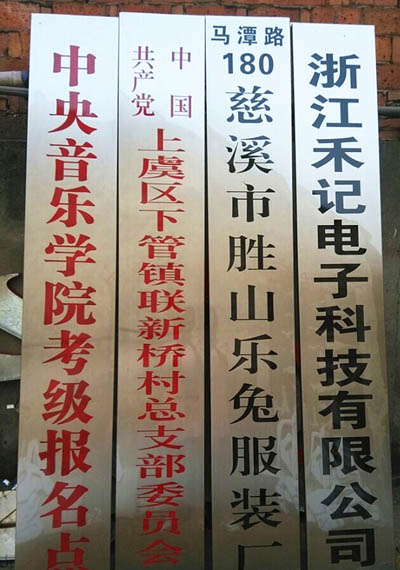 中央音乐学院考级报名点
中国
共产党
上虞区下管镇联新桥村总支部委员会
马潭路
180
慈溪市胜山乐兔服装厂
浙江禾记电子科技有限公司